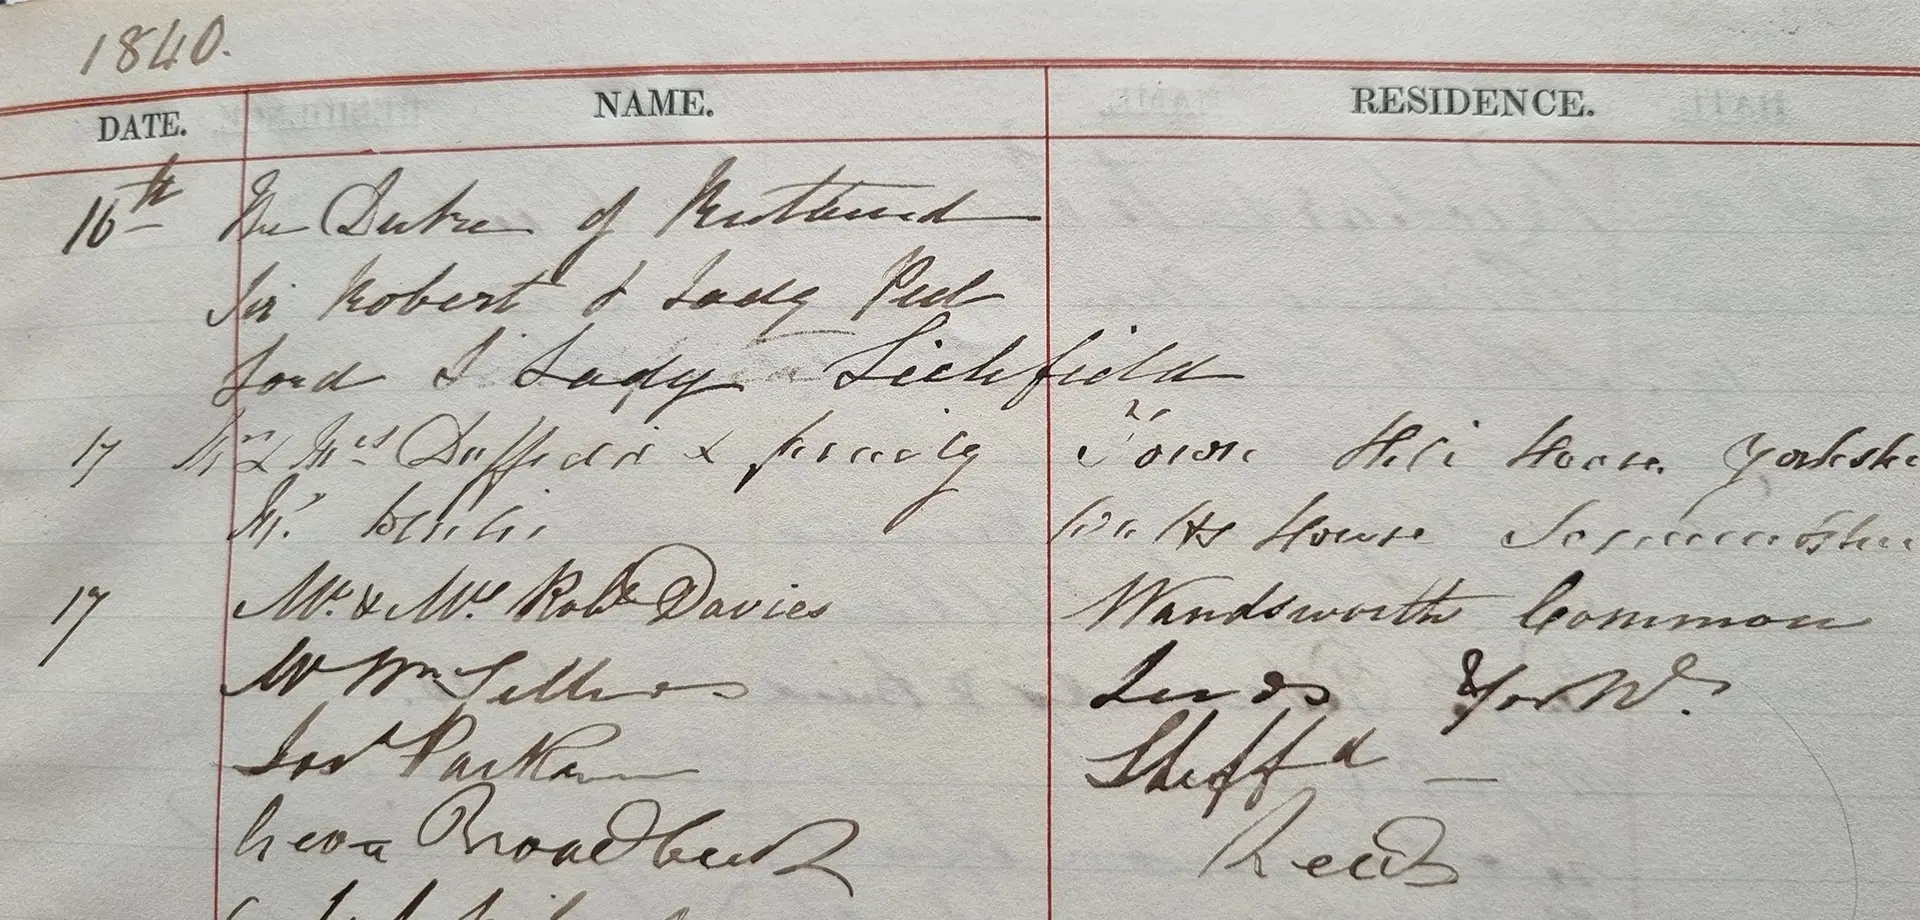 1840.
DATE. NAME. RESIDENCE.
16th The Duke of Rutland
Sir Robert & Lady Peel
Lord & Lady Lichfield
17 Mr & Mrs & family Town Hill House Yorkshi
Mr. House
17 Mr. & Mrs. Robt Davies Wandsworth Common
Mr Wm Leeds
Josh Sheffd —
Geo Broadbent Leeds